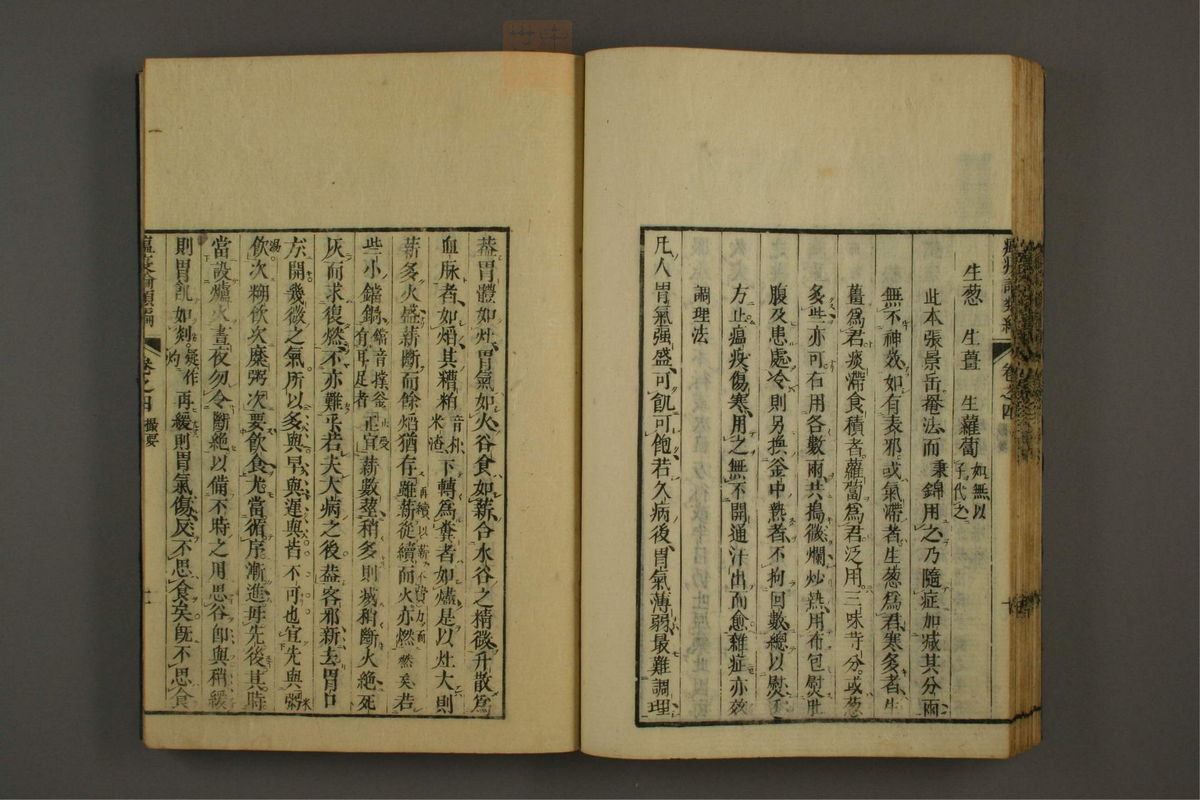 生葱　生薑　生蘿蔔 如無以子代之
此本張景岳菴法而秉錦用之乃隨症加減其分兩
無不神效如有表邪或氣滯者生葱爲君寒多者生
薑爲君痰滯食積者蘿蔔爲君泛用三味等分或葱
多些亦可右用各數兩共搗微爛炒熱用布包熨肚
腹及患處冷則另換釜中熱者不拘回數總以熨至
方止瘟疫傷寒用之無不開通汗出而愈雜症亦效
調理法
凡人胃氣强盛可飢可飽若久病後胃氣薄弱最難調理
葢胃體如灶胃氣如火谷食如薪合水谷之精微升散爲
血脉者如焰其糟粕 音朴米渣 下轉爲糞者如燼是以灶大則
薪多火盛薪斷而餘焰猶存雖薪從續而火亦燃 再續以薪不費力而燃 若
些小鐺鍋 鐺音撑釜有耳足者 正宜薪數莖稍多則滅稍斷火絕死
灰而求復燃不亦難乎若夫大病之後葢客邪新去胃口
方開幾微之氣所以多與早與遲與皆不可也宜先與粥
飲次糊飲次糜粥次要飲食尤當循序漸進毋先後其時
湯
當設爐火晝夜勿令斷絕以備不時之用思谷即與稍緩
則胃飢如剡 疑作灼 再緩則胃氣傷反不思食矣旣不思食
瘟疫論類編　卷之四　撮要　十一